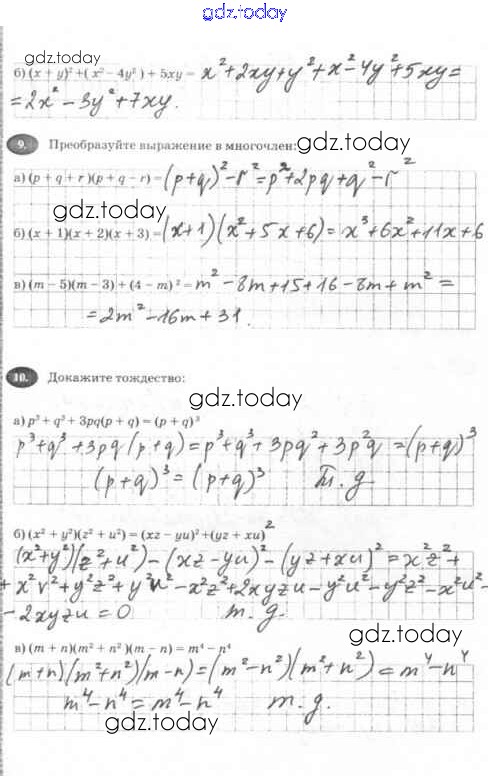 gdz.today
gdz.today
б) (x + y)² + ( x² – 4y² ) + 5xy = x² + 2xy + y² + x² – 4y² + 5xy =
= 2x² – 3y² + 7xy.
9. Преобразуйте выражение в многочлен: gdz.today
а) (p + q + r)(p + q – r) = (p+q)² – r² = p² + 2pq + q² – r²
gdz.today
б) (x + 1)(x + 2)(x + 3) = (x+1)(x² + 5x + 6) = x³ + 6x² + 11x + 6
gdz.today
в) (m – 5)(m – 3) + (4 – m)² = m² – 8m + 15 + 16 – 8m + m² =
= 2m² – 16m + 31.
10. Докажите тождество:
gdz.today
а) p³ + q³ + 3pq(p + q) = (p + q)³
p³ + q³ + 3pq(p + q) = p³ + q³ + 3pq² + 3p²q = (p+q)³
(p+q)³ = (p+q)³ т.д.
gdz.today
б) (x² + y²)(z² + u²) = (xz – yu)² + (yz + xu)²
(x²+y²)(z²+u²) – (xz – yu)² – (yz + xu)² = x²z² +
+ x²v² + y²z² + y²u² – x²z² + 2xyzu – y²u² – y²z² – x²u² –
– 2xyzu = 0 т.д.
gdz.today
в) (m + n)(m² + n²)(m – n) = m⁴ – n⁴
(m+n)(m²+n²)(m–n) = (m² – n²)(m² + n²) = m⁴ – n⁴
m⁴ – n⁴ = m⁴ – n⁴ т.д.
gdz.today